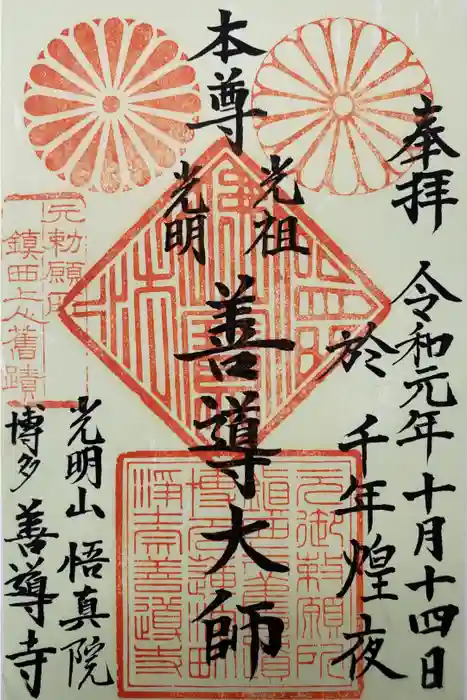 奉拝
令和元年十月十四日
於 千年煌夜
本尊
光祖
光明
善導大師
光明山 悟真院
博多 善導寺
元勅願所
鎮西上人舊蹟
元御勅願所
鎮西上人舊蹟
浄宗善導寺